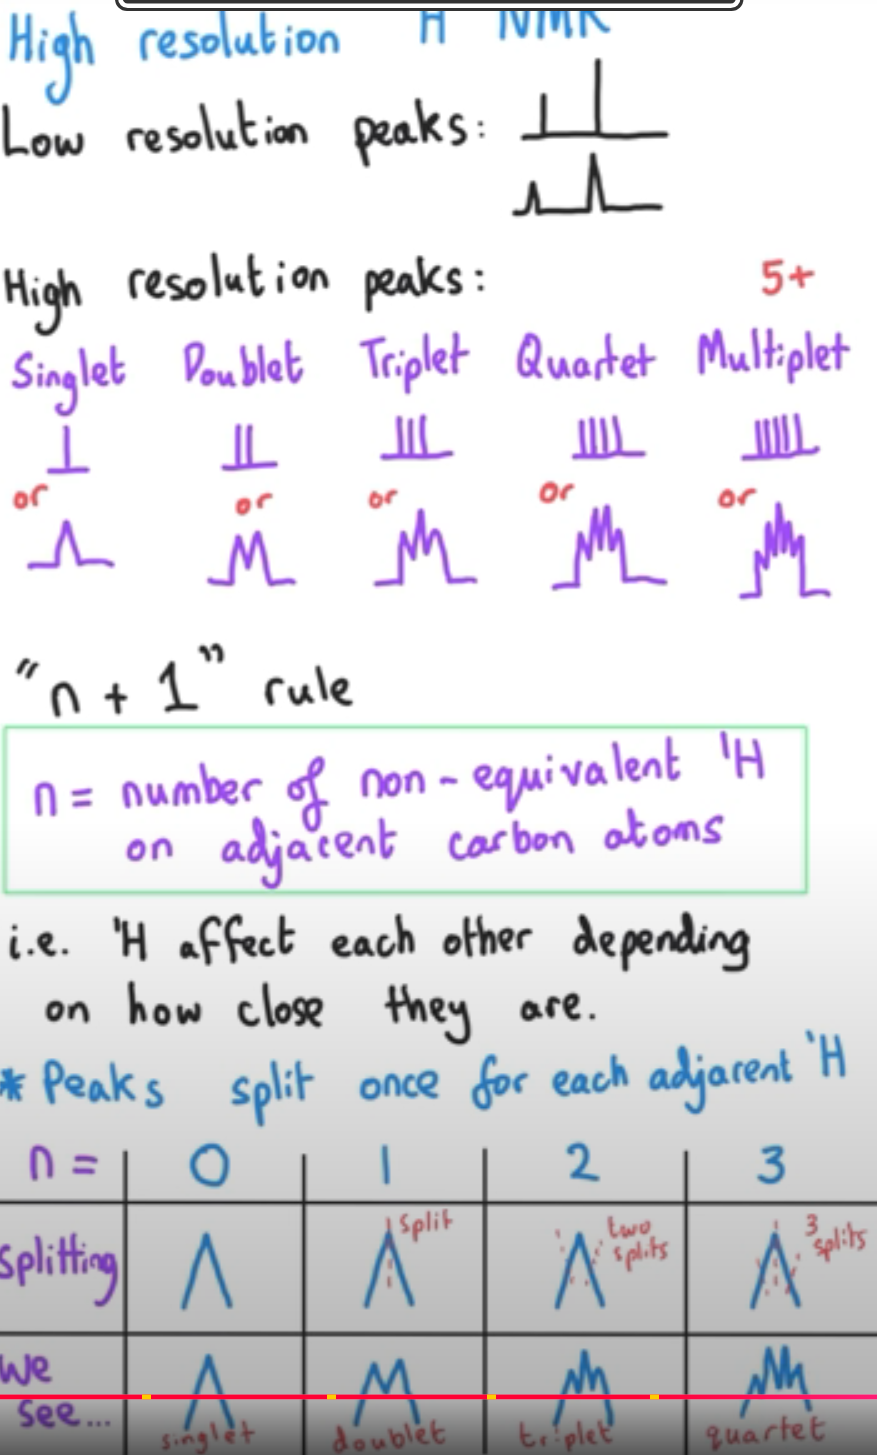 High resolution H NMR
Low resolution peaks:
High resolution peaks:
5+
Singlet Doublet Triplet Quartet Multiplet
or or or or or
"n + 1" rule
n = number of non-equivalent ¹H
on adjacent carbon atoms
i.e. ¹H affect each other depending
on how close they are.
* Peaks split once for each adjacent ¹H
n = 0 1 2 3
Splitting split two splits 3 splits
We see...
singlet doublet triplet quartet